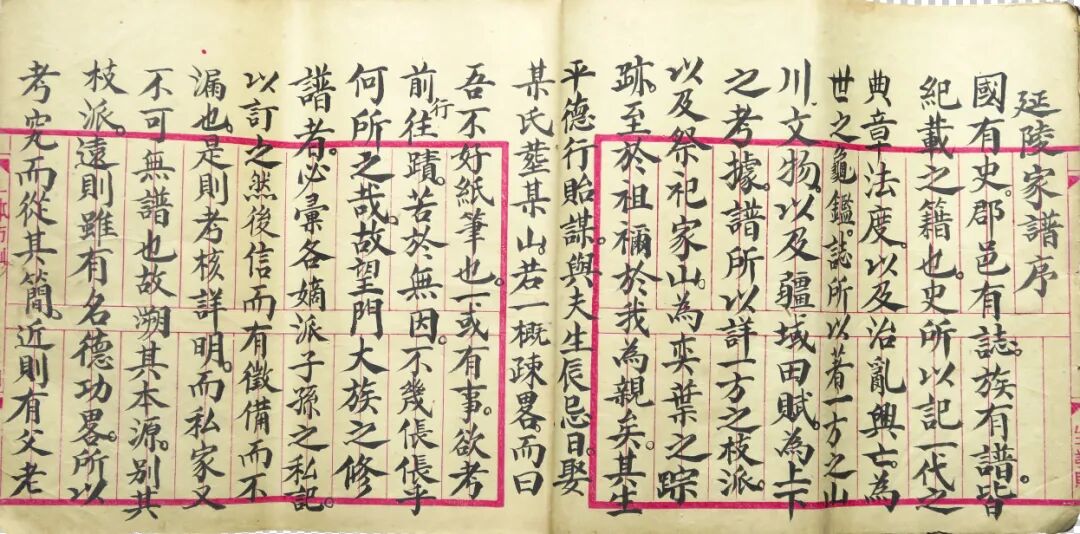 延陵家譜序
國有史。郡邑有誌。族有譜。皆
紀載之籍也。史所以記一代之
典章法度。以及治亂興亡。為
世之龜鑑。誌所以著一方之山
川文物。以及疆域田賦。為上下
之考據。譜所以詳一方之枝派。
以及祭祀家山。為奕葉之踪
跡。至於祖禰於我為親矣。其生
平德行貽謀。與夫生辰忌日。娶
某氏塟某山。若一概疎畧。而曰
吾不好紙筆也。一或有事。欲考
前行往蹟。苦於無因。不幾倀倀乎
何所之哉。故望門大族之修
譜者。必彙各嫡派子孫之私記。
以訂之然後信而有徵備而不
漏也。是則考核詳明。而私家又
不可無譜也故溯其本源。別其
枝派。遠則雖有名德功畧。所以
考究而從其簡。近則有父老